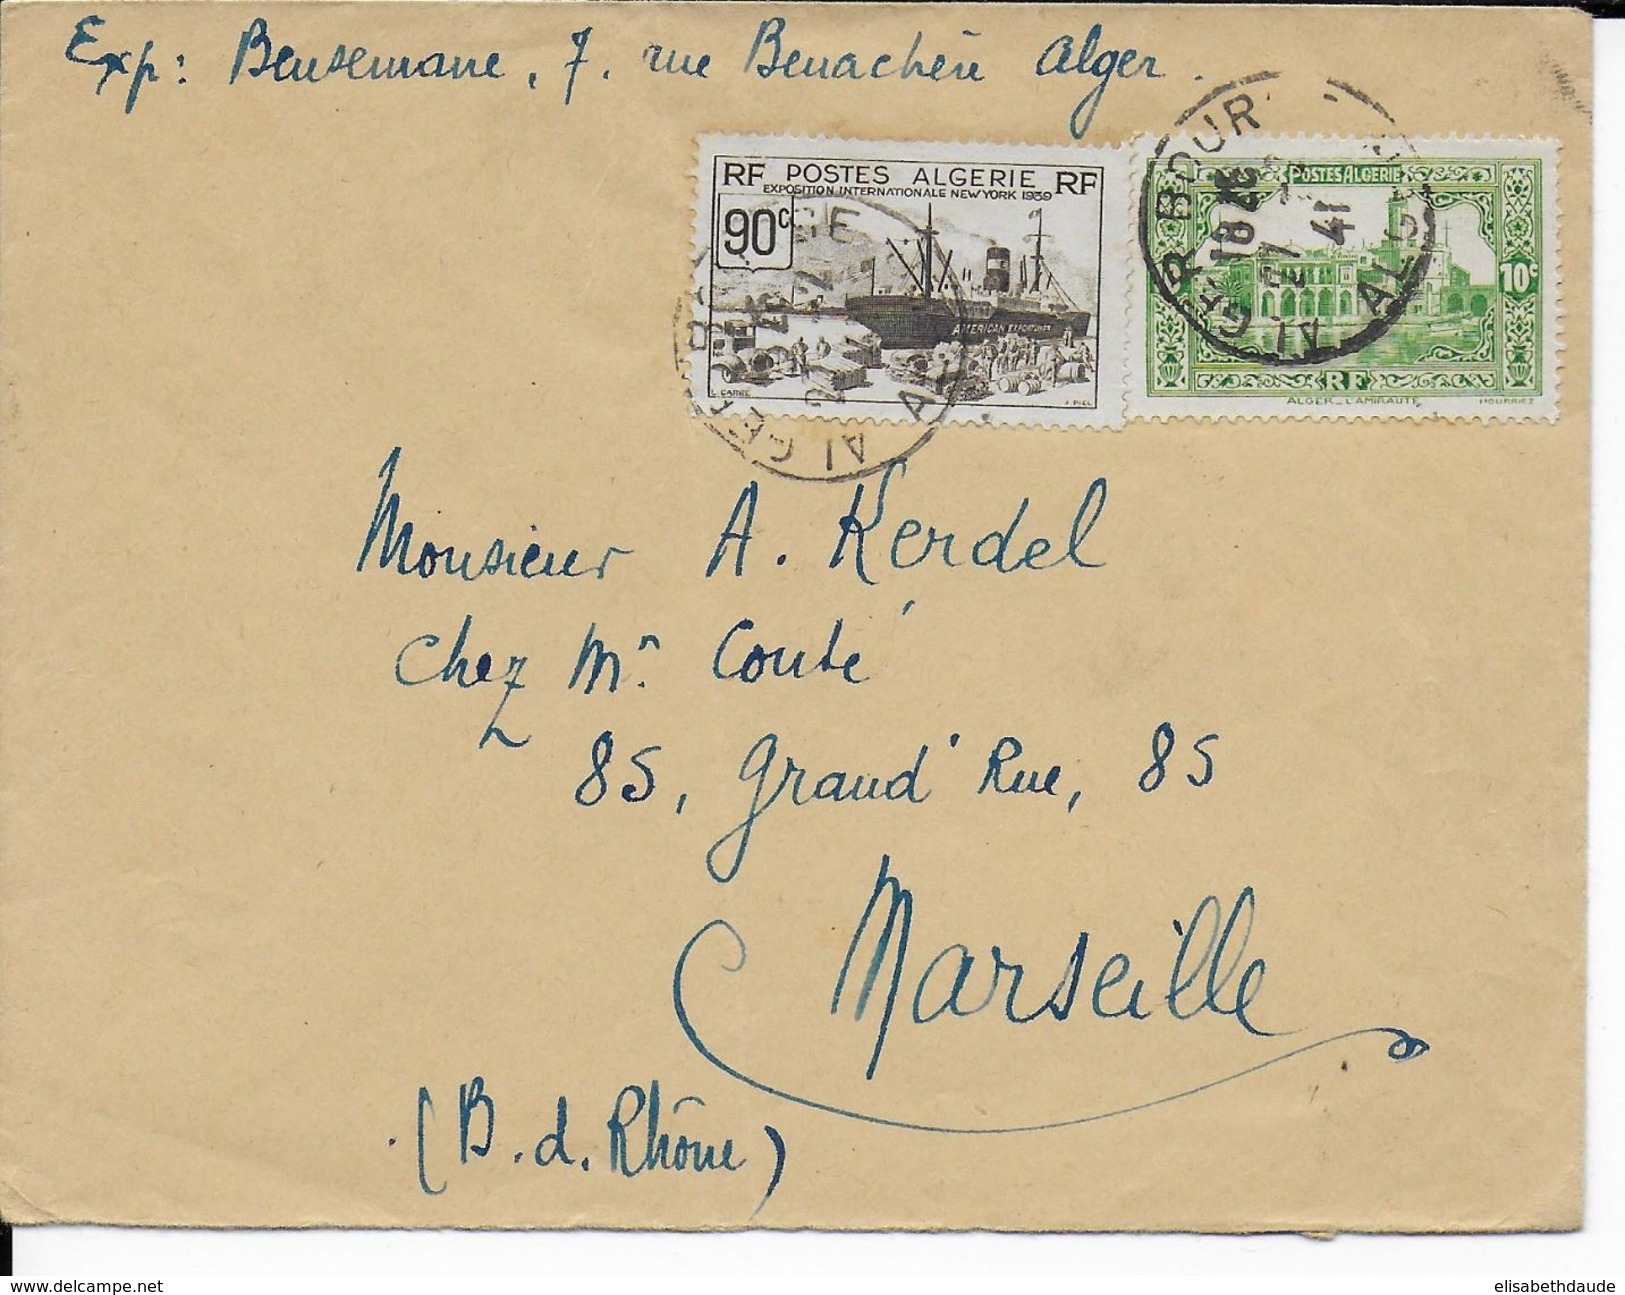 Exp: Bensemane, 7. rue Benachère Alger.
RF POSTES ALGERIE RF
EXPOSITION INTERNATIONALE NEW YORK 1939
90c
AMERICAN EXPORT LINES
L. CARRE J. PIEL
POSTES ALGERIE
10c
RF
ALGER_L'AMIRAUTÉ HOURRIEZ
ALGER BOUR
ALGER
18 26
41
Monsieur A. Kerdel
chez Mr. Conté
85, Grand' Rue, 85
Marseille
(B. d. Rhône)
elisabethdaude